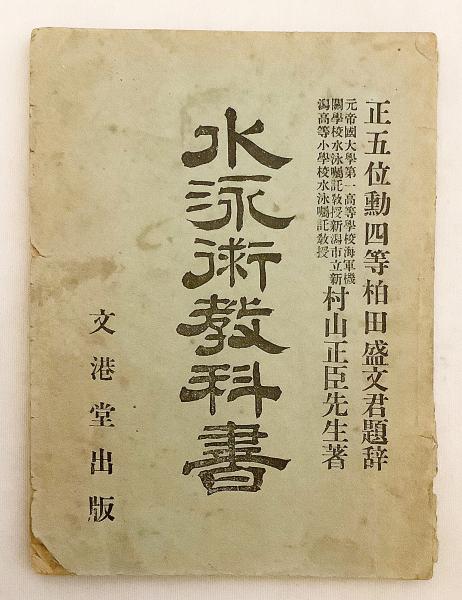 正五位勳四等柏田盛文君題辞
元帝國大學第一高等學校海軍機
關學校水泳囑託敎授新潟市立新
潟高等小學校水泳囑託敎授
村山正臣先生著
水泳術敎科書
文港堂出版